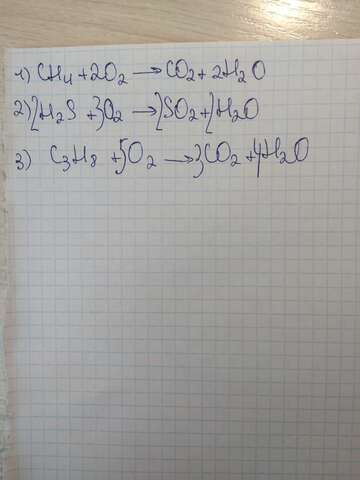 1) CH4 + 2O2 → CO2 + 2H2O
2) 2H2S + 3O2 → 2SO2 + 2H2O
3) C3H8 + 5O2 → 3CO2 + 4H2O